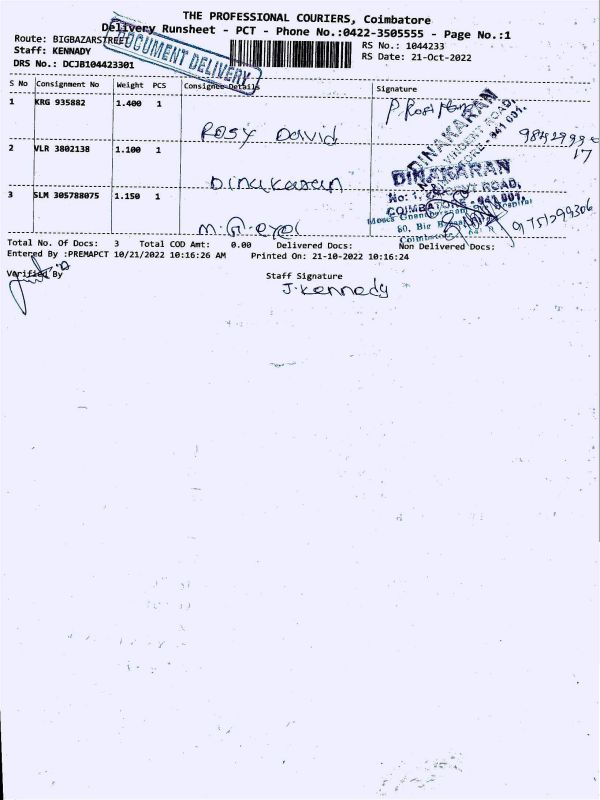 THE PROFESSIONAL COURIERS, Coimbatore
Delivery Runsheet - PCT - Phone No.:0422-3505555 - Page No.:1
Route: BIGBAZARSTREET
RS No.: 1044233
Staff: KENNADY
RS Date: 21-Oct-2022
DRS No.: DCJB104423301
DOCUMENT DELIVERY
S No Consignment No Weight PCS Consignee Details Signature
1 KRG 935882 1.400 1
Rosy David
2 VLR 3802138 1.100 1
Dinakaran
DINAKARAN
DINAKARAN
COIMBATORE - 641 001.
3 SLM 305788075 1.150 1
M.G. eye
60, Big
9751299306
Total No. Of Docs: 3 Total COD Amt: 0.00 Delivered Docs: Non Delivered Docs:
Entered By :PREMAPCT 10/21/2022 10:16:26 AM Printed On: 21-10-2022 10:16:24
Verified By Staff Signature
J. Kennady